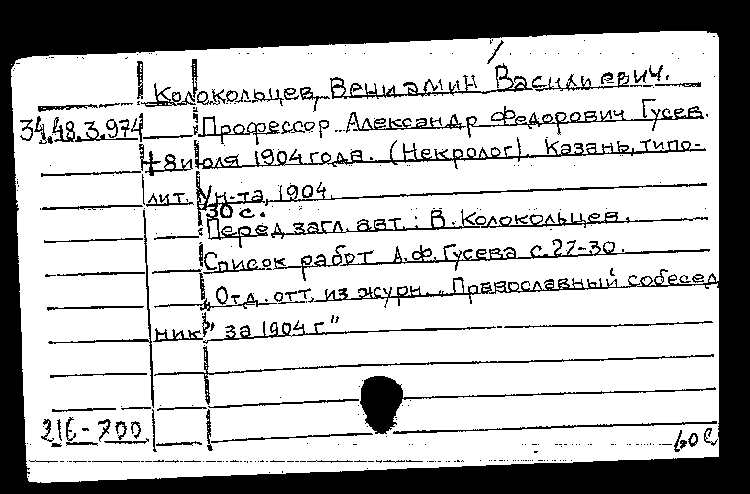 Колокольцев, Вениамин Васильевич.
34.48.3.974 Профессор Александр Федорович Гусев.
† 8 июля 1904 года. (Некролог). Казань, типо-
лит. Ун-та, 1904.
30 с.
Перед загл. авт.: В. Колокольцев.
Список работ А.Ф. Гусева с. 27-30.
„Отд. отт. из журн. „Православный собесед
ник" за 1904 г."
216-700